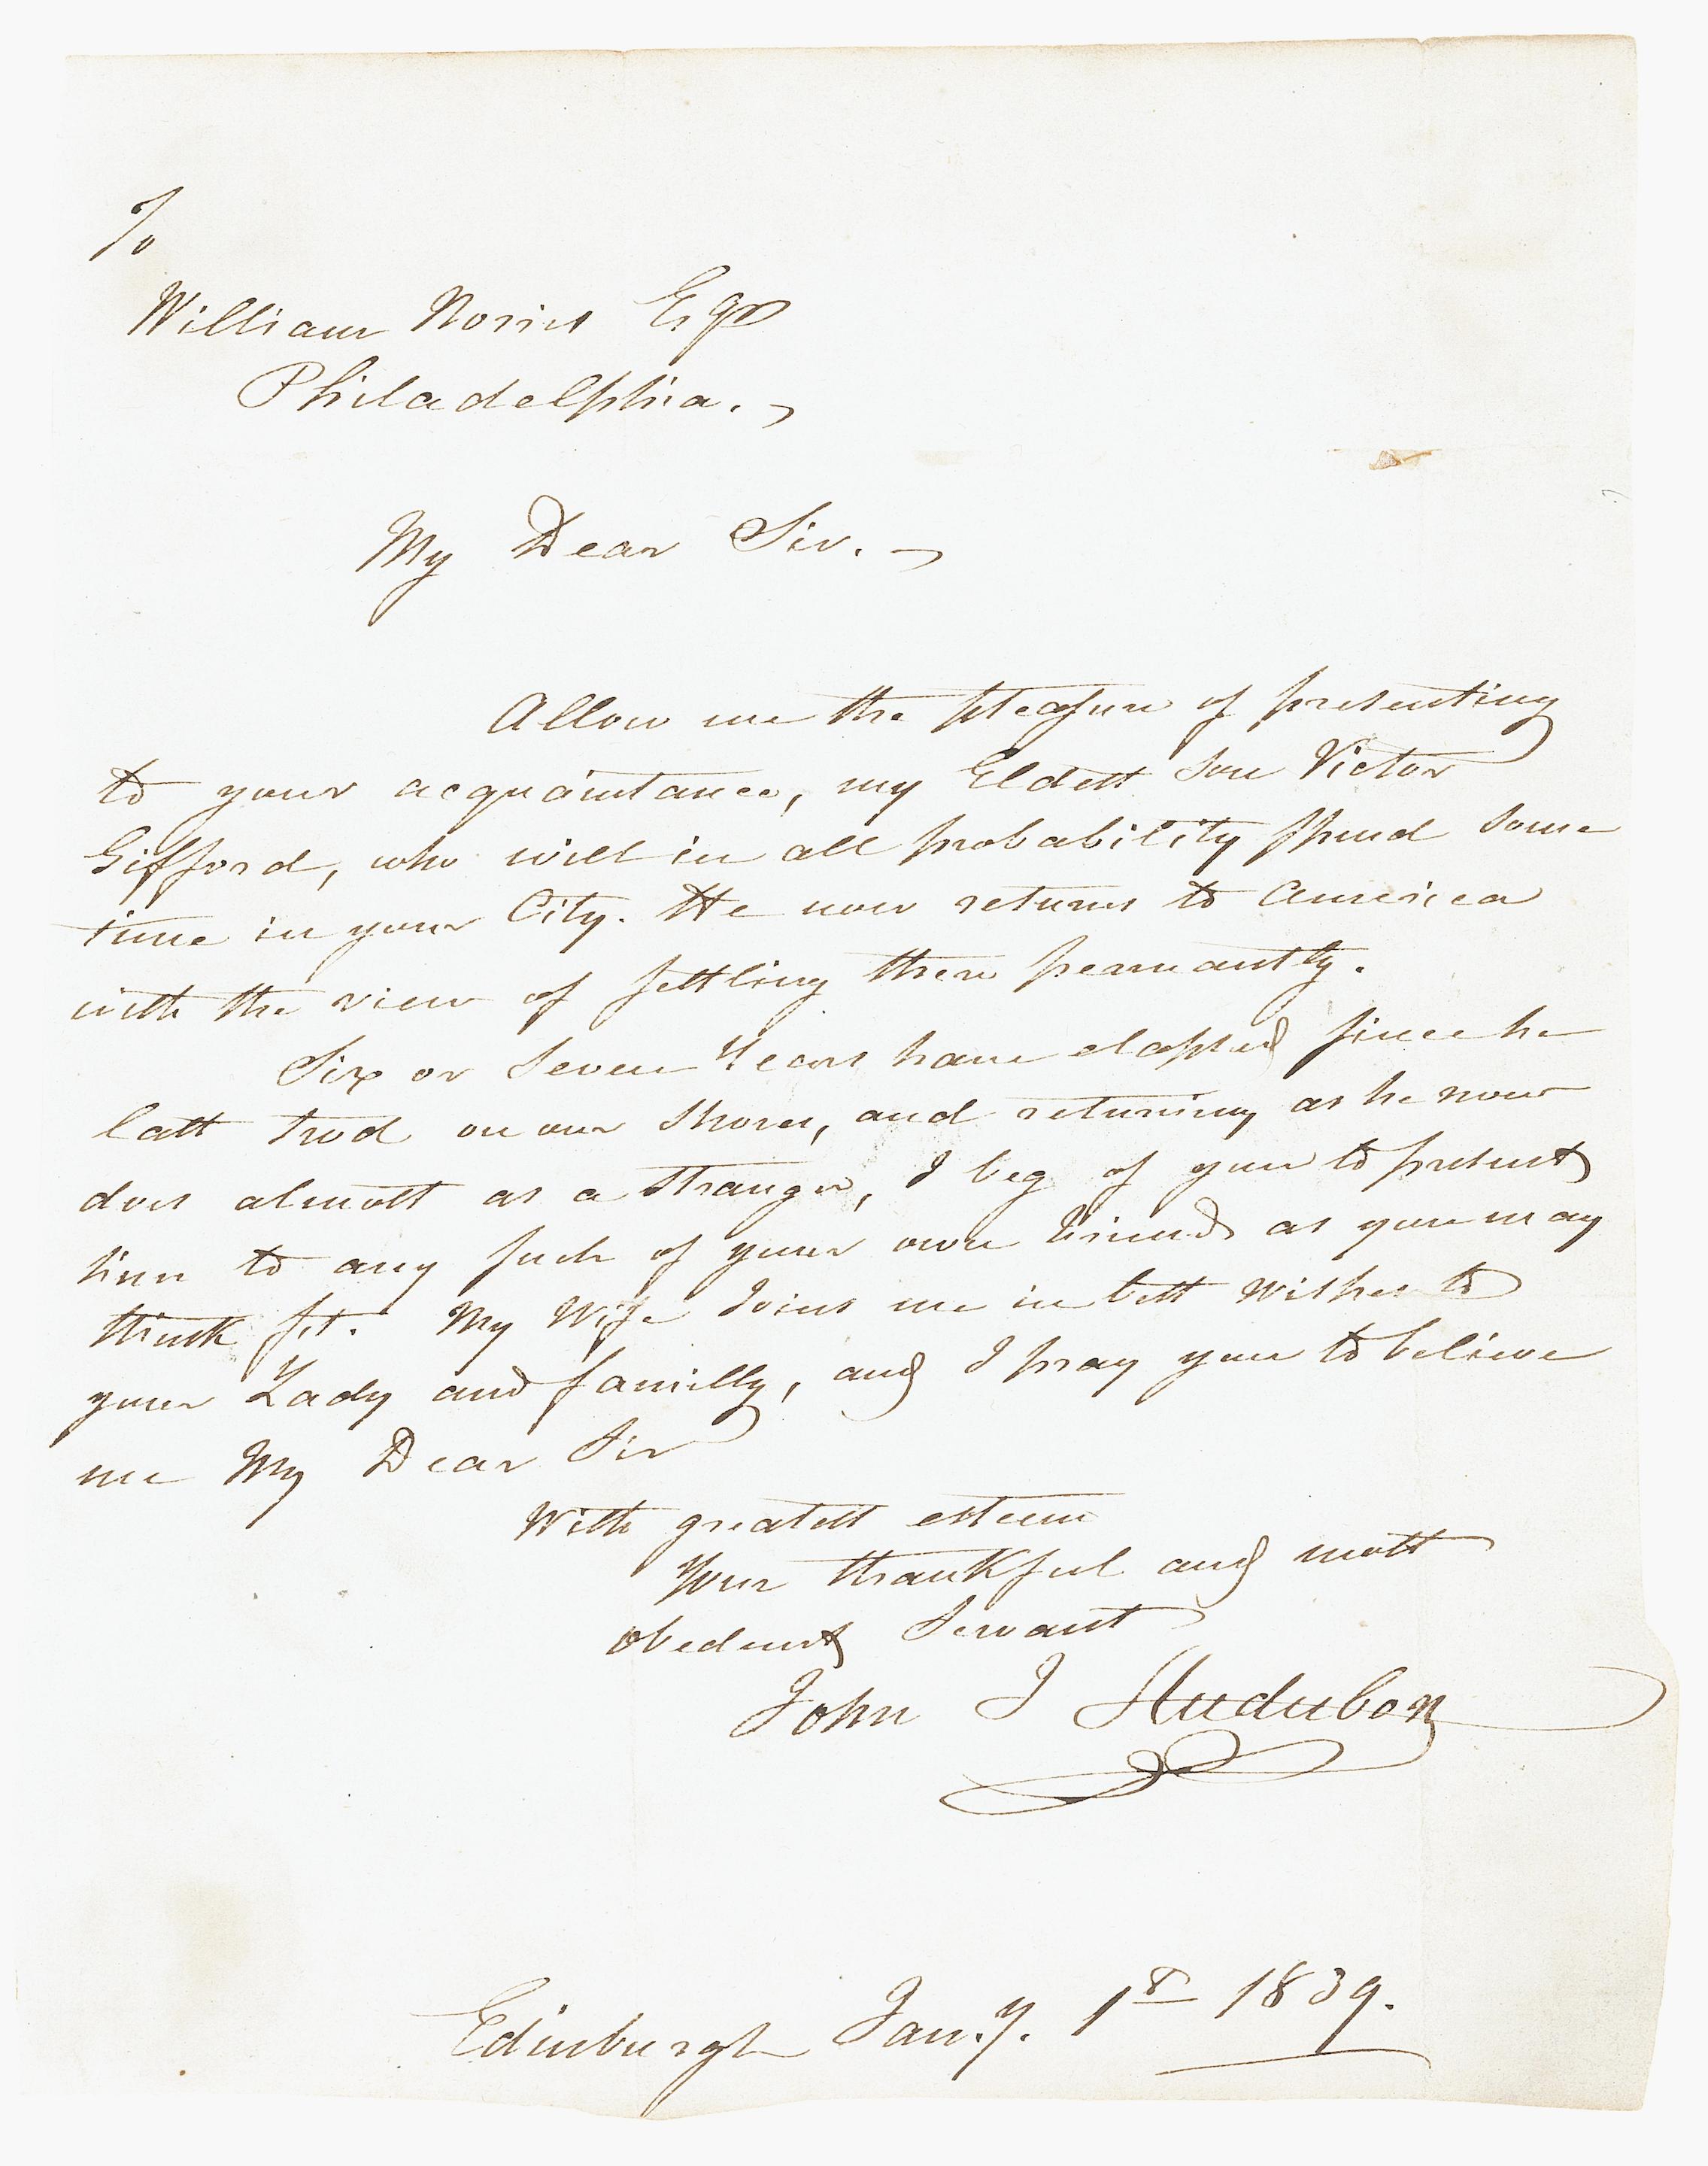 To
William Norris Esqr
Philadelphia.
My Dear Sir.
Allow me the pleasure of presenting
to your acquaintance, my Eldest Son Victor
Gifford, who will in all probability spend some
time in your City. He now returns to America
with the view of settling there permantly.
Six or Seven Years have elapsed since he
last trod on our Shores, and returning as he now
does almost as a stranger, I beg of you to present
him to any such of your own friends as you may
think fit. My Wife Joins me in best wishes to
your Lady and familly, and I pray you to believe
me My Dear Sir
With greatest esteem
Your thankful and most
obedient Servant
John J Audubon
Edinburgh Jan.y. 1st 1839.